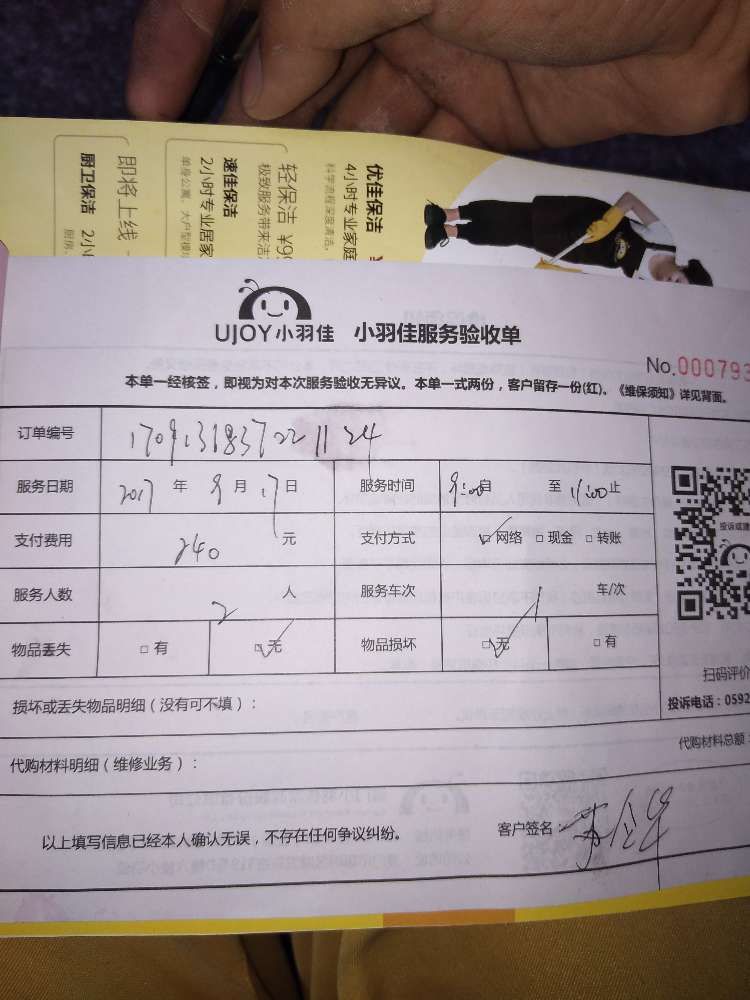 优佳保洁
4小时专业家庭
科学流程深度清洁。
轻保洁 ¥99
极致服务带来洁
速佳保洁
2小时专业居家
单身公寓、大户型模块
即将上线
厨卫保洁 2小
厨房、
UJOY小羽佳 小羽佳服务验收单
No.000793
本单一经核签，即视为对本次服务验收无异议。本单一式两份，客户留存一份(红)。《维保须知》详见背面。
订单编号 1709131837221124
服务日期 2017 年 9 月 17 日 服务时间 9:00 自 至 11:00 止
支付费用 240 元 支付方式 ☑ 网络 □ 现金 □ 转账
服务人数 2 人 服务车次 1 车/次
物品丢失 □ 有 ☑ 无 物品损坏 ☑ 无 □ 有
投诉或建
扫码评价
投诉电话：0592
损坏或丢失物品明细（没有可不填）：
代购材料总额：
代购材料明细（维修业务）：
以上填写信息已经本人确认无误，不存在任何争议纠纷。
客户签名：